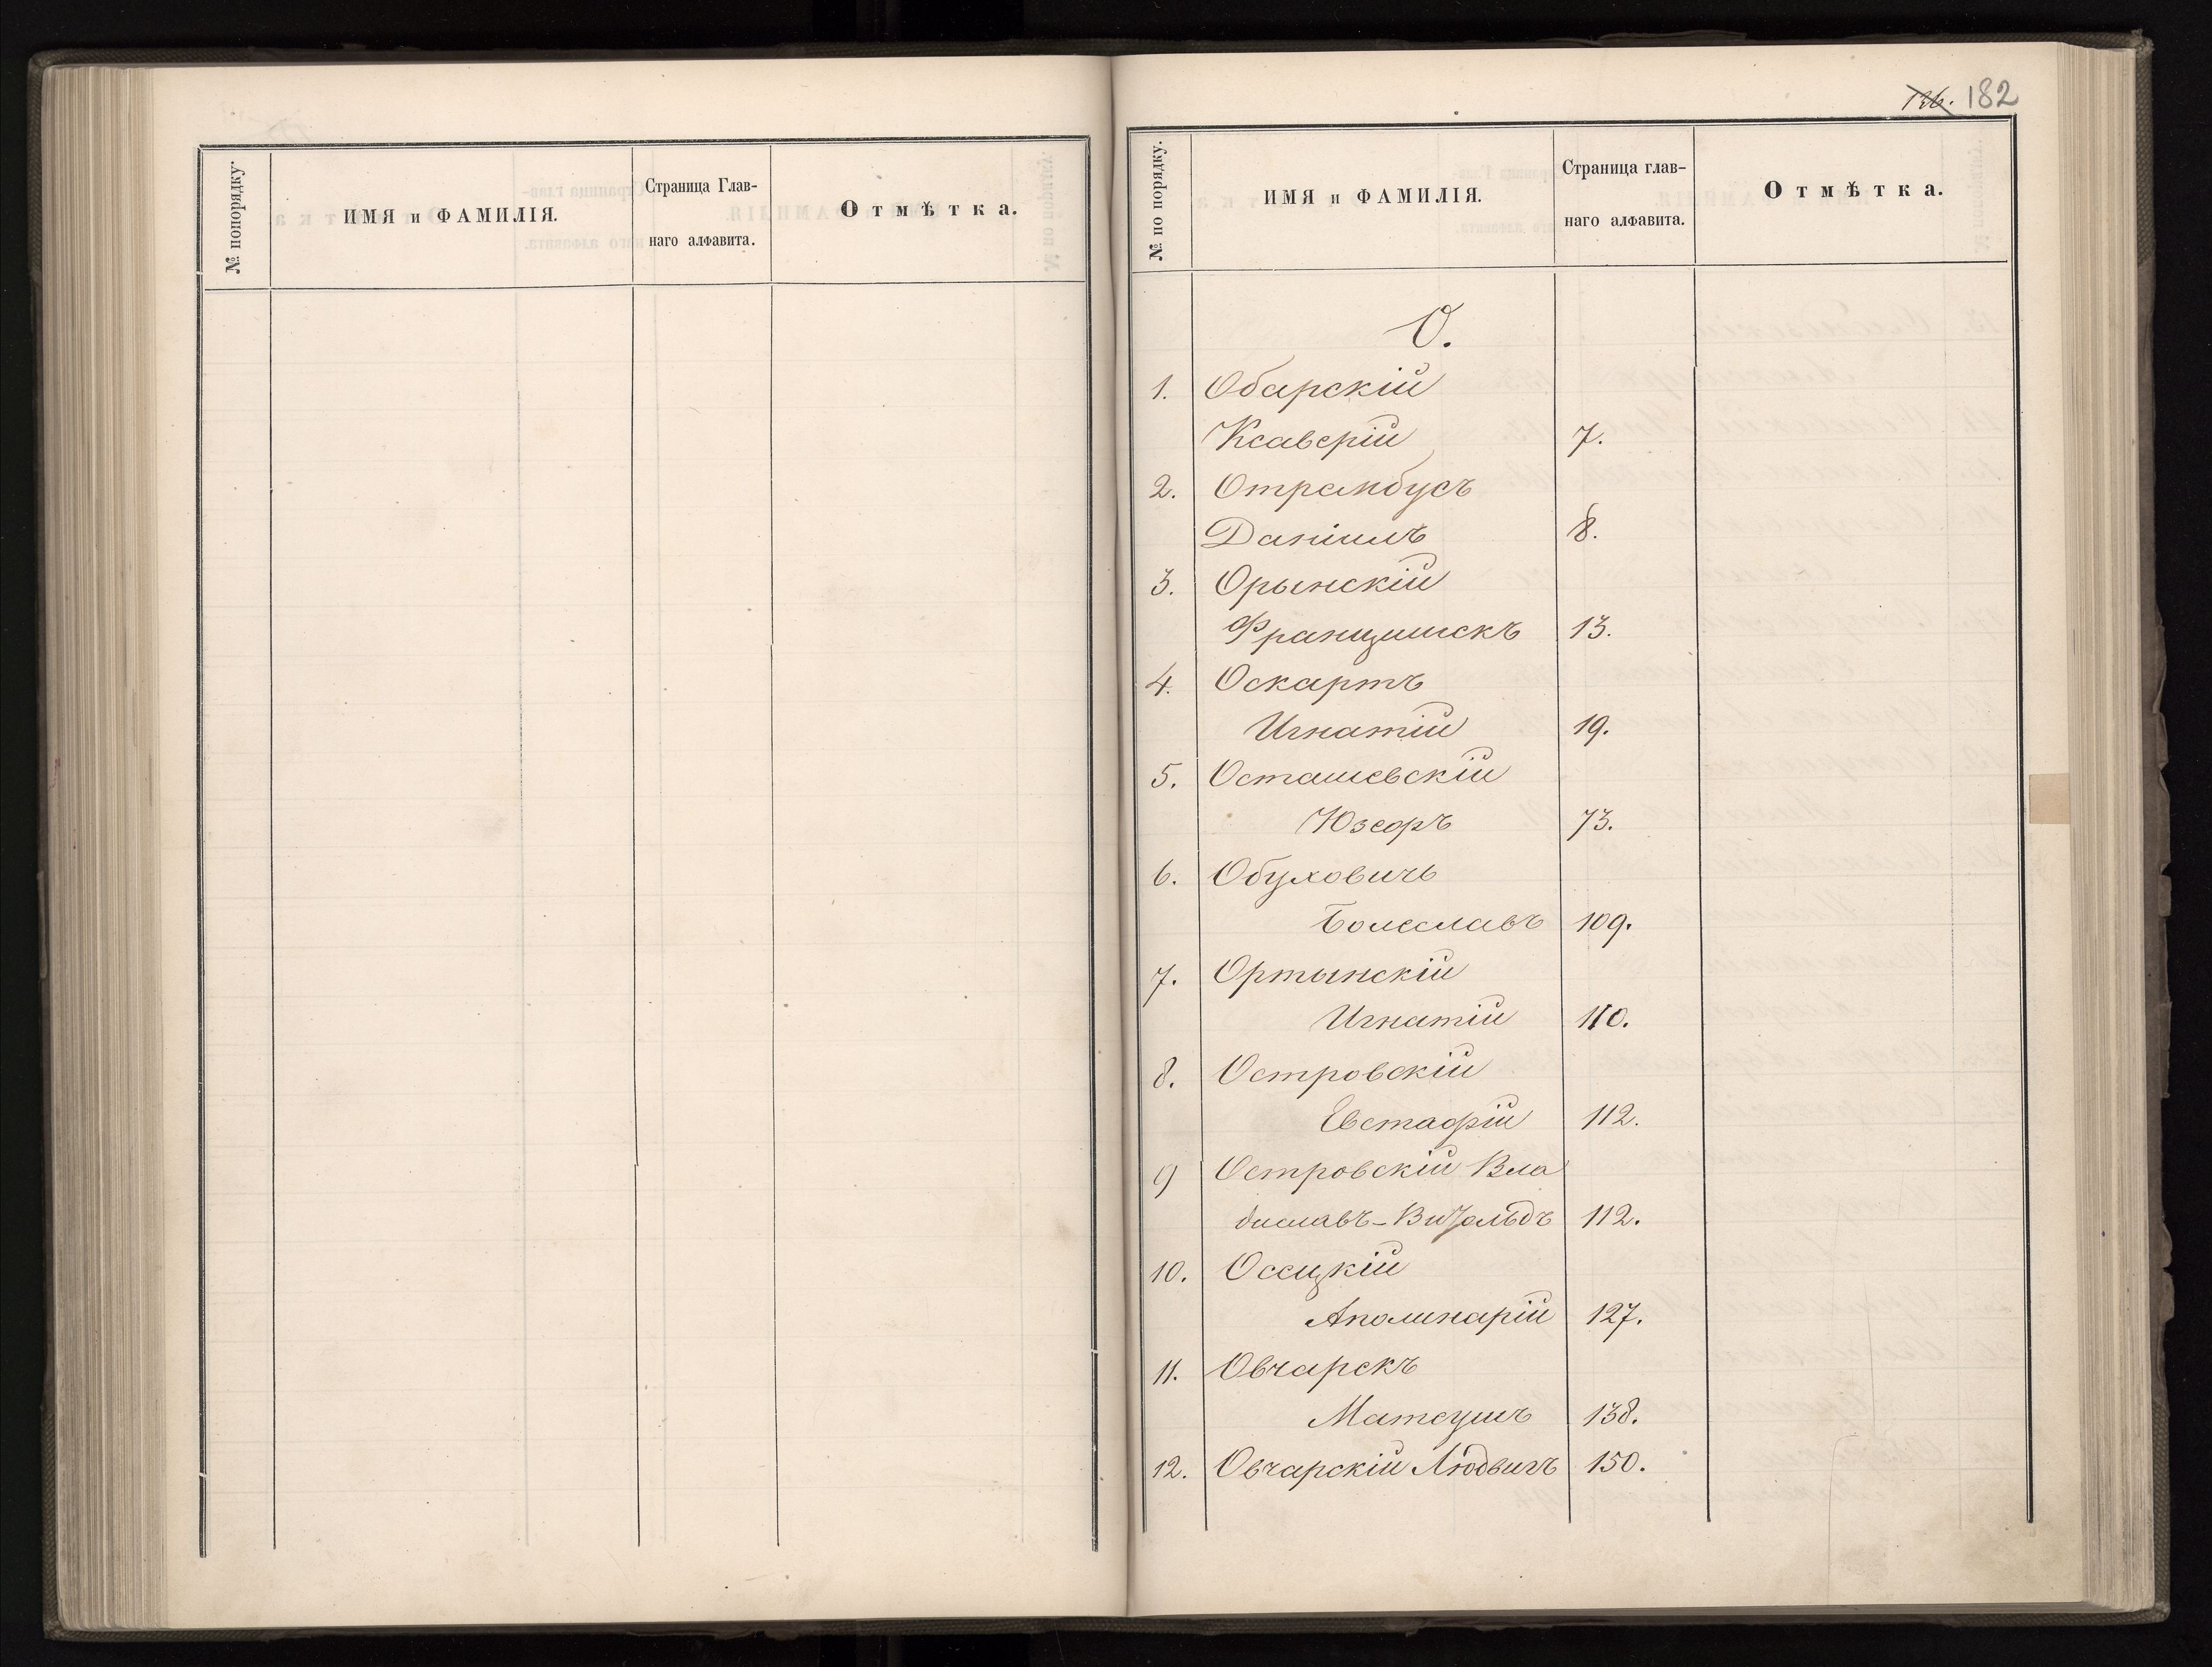 № попорядку.
ИМЯ и ФАМИЛІЯ.
Страница Глав-
наго алфавита.
Отмѣтка.
126. 182
№ по порядку.
ИМЯ и ФАМИЛІЯ.
Страница глав-
наго алфавита.
Отмѣтка.
О.
1. Обарскій
Ксаверій 7.
2. Отрембусъ
Даніилъ 8.
3. Орынскій
Францишекъ 13.
4. Оскартъ
Игнатій 19.
5. Осташевскій
Юзефъ 73.
6. Обуховичъ
Болеславъ 109.
7. Ортынскій
Игнатій 110.
8. Островскій
Евстафій 112.
9 Островскій Вла
диславъ-Витольдъ 112.
10. Оссецкій
Аполинарій 127.
11. Овчарекъ
Матеушъ 138.
12. Овчарскій Людвигъ 150.